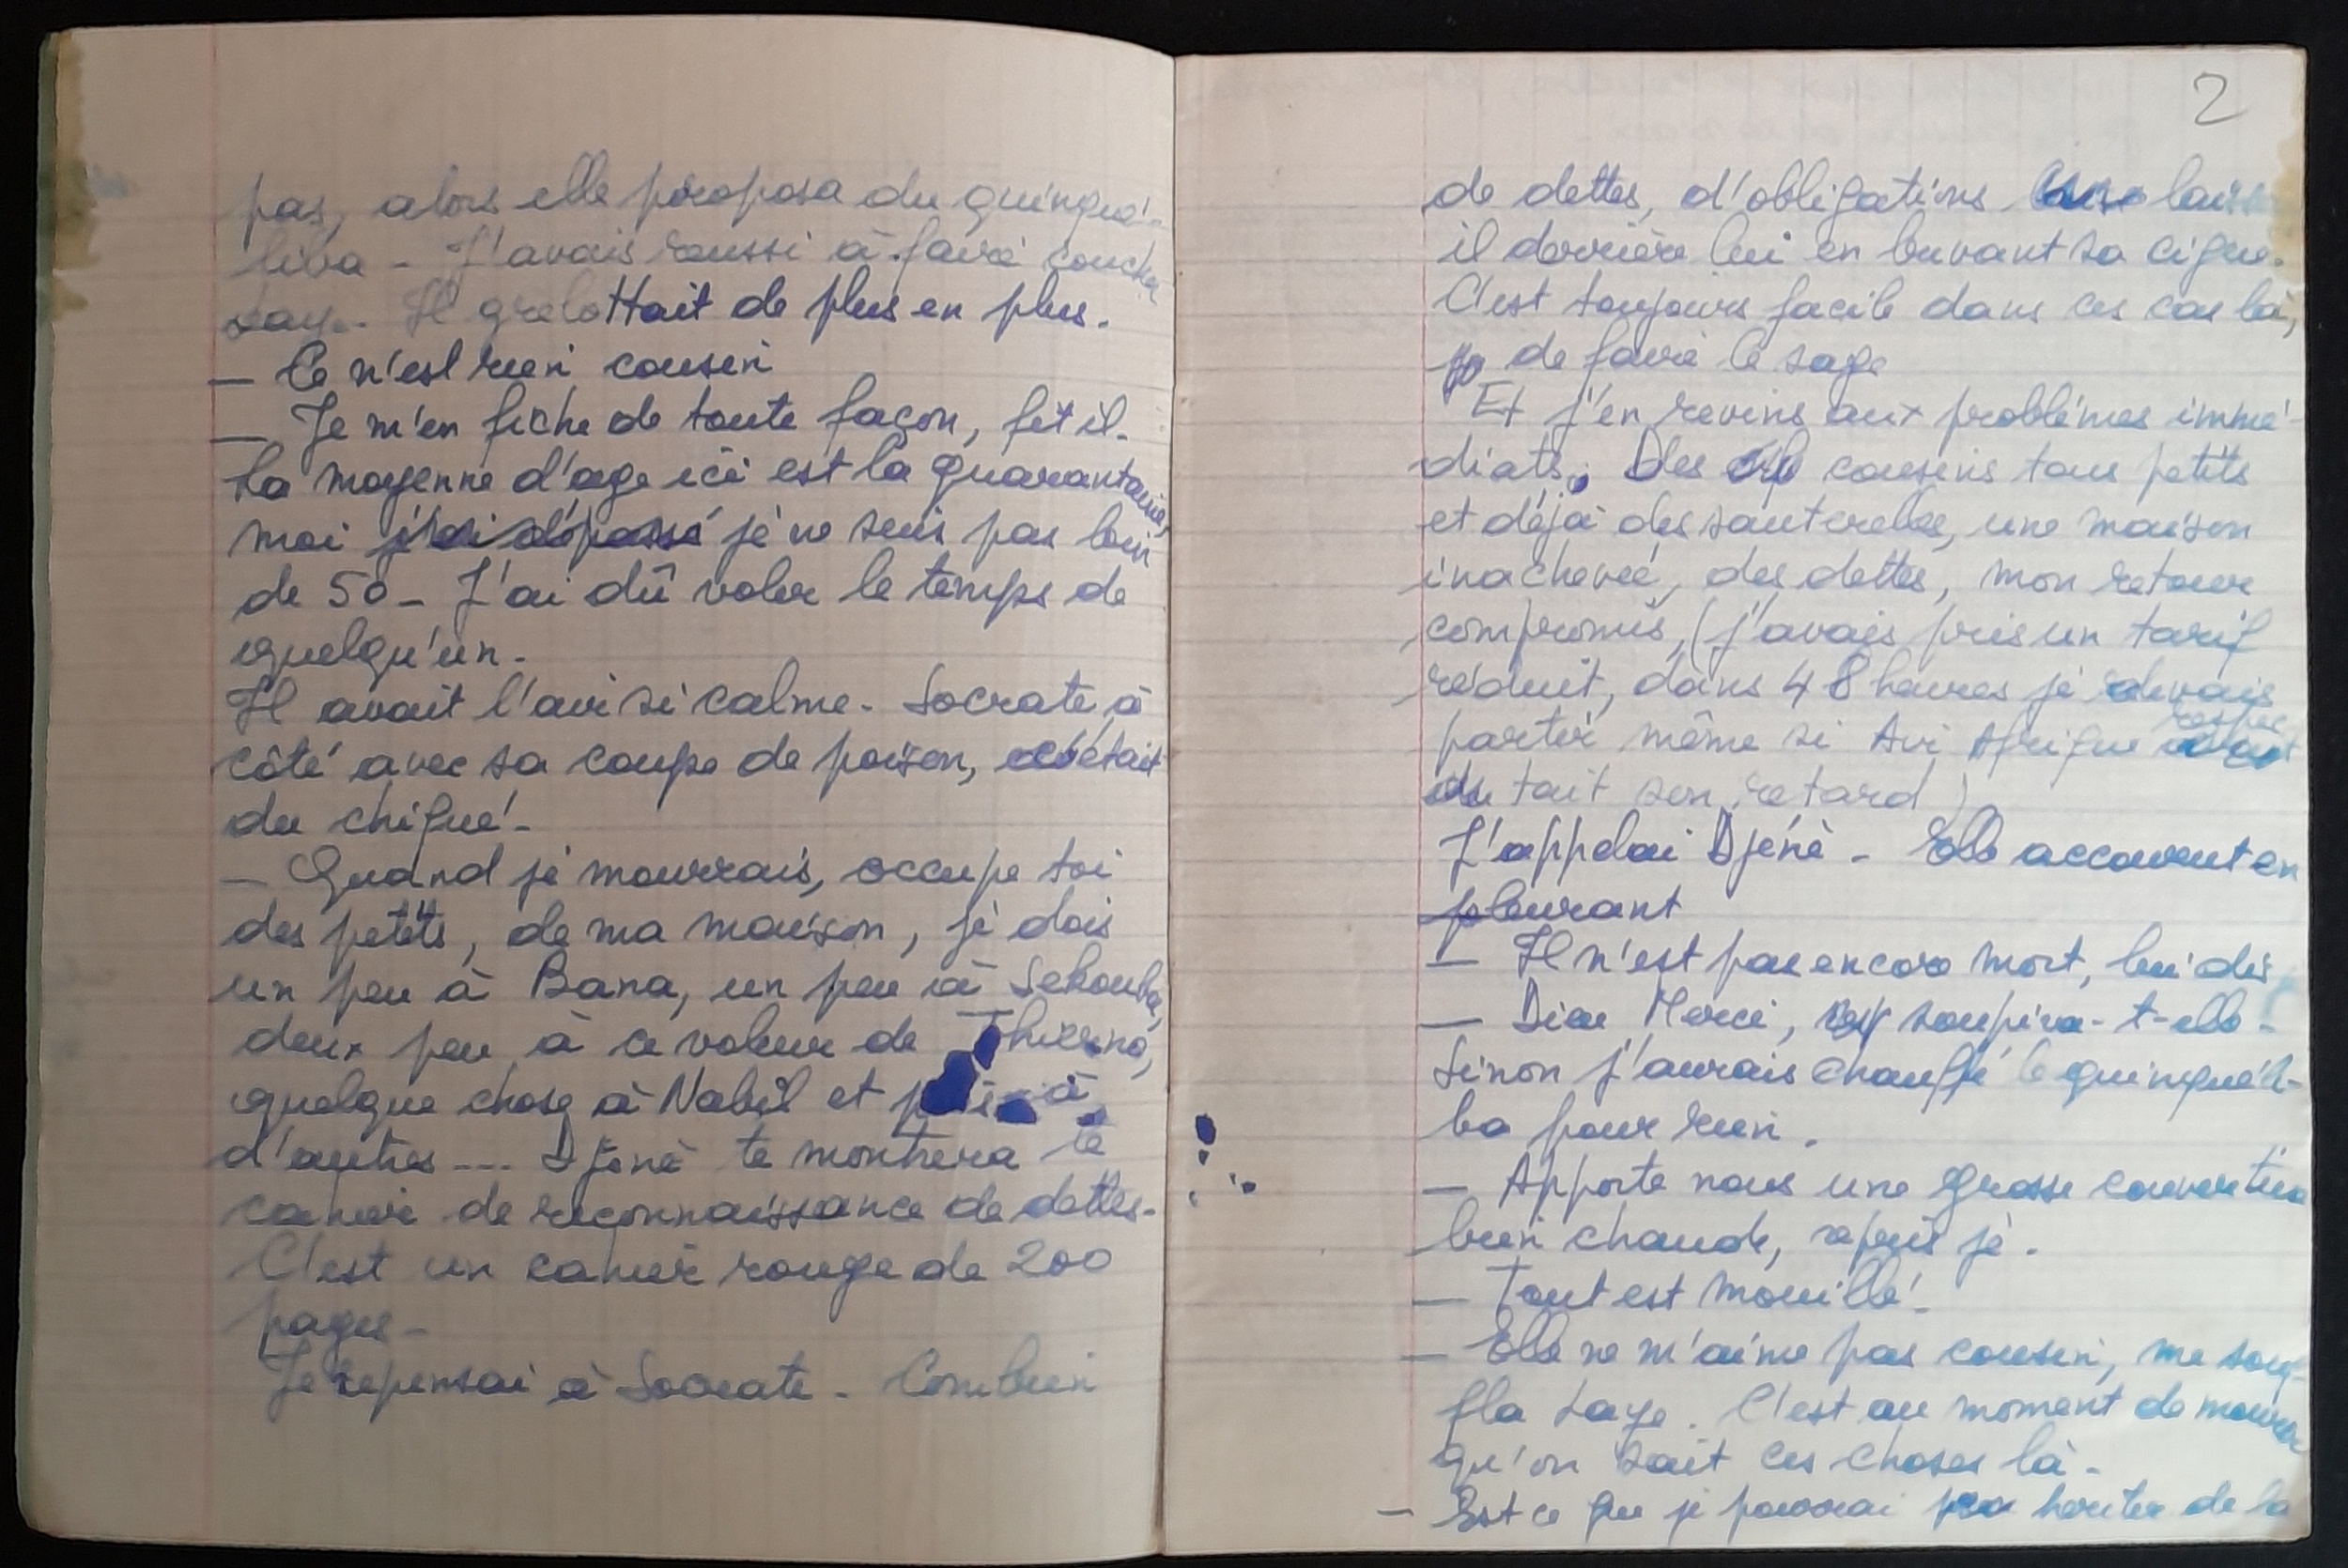 pas, alors elle proposa du quinqué-
liba - J'avais reussi à faire coucher
Laye. Il grelottait de plus en plus.
— Ce n'est rien cousin
— Je m'en fiche de toute façon, fit il.
La moyenne d'age ici est la quarantaine,
moi j'ai dépassé je ne suis pas loin
de 50 - J'ai dû voler le temps de
quelqu'un.
Il avait l'air si calme. Socrate à
côté avec sa coupe de poison, c'était
du chiqué -
— Quand je mourrais, occupe toi
des petits, de ma maison, je dois
un peu à Bana, un peu à Sekouba,
deux peu à ce voleur de Thierno,
quelque chose à Nabil et puis à
d'autres ... Djéné te montrera le
cahier de reconnaissance de dettes.
C'est un cahier rouge de 200
pages -
Je repensai à Socrate - Combien
2
de dettes, d'obligations laissa
il derrière lui en buvant sa cigue.
C'est toujours facile dans ces cas là,
de faire le sage
Et j'en revins aux problémes immé-
diats. Des cousins tous petits
et déjà des sauterelles, une maison
inachevée, des dettes, mon retour
compromis, (j'avais pris un tarif
réduit, dans 48 heures je devais
partir même si Air Afrique respec
tait son retard)
J'appelai Djéné - Elle accourut en
pleurant
— Il n'est pas encore mort, lui dis
— Dieu Merci, soupira-t-elle -
Sinon j'aurais chauffé le quinquéli-
ba pour rien.
— Apporte nous une grosse couverture
bien chaude, repris je.
— Tout est mouillé -
— Elle ne m'aime pas cousin, me souf-
fla Laye. C'est au moment de mourir
qu'on sait ces choses là -
— Est ce que je pourrai heriter de la